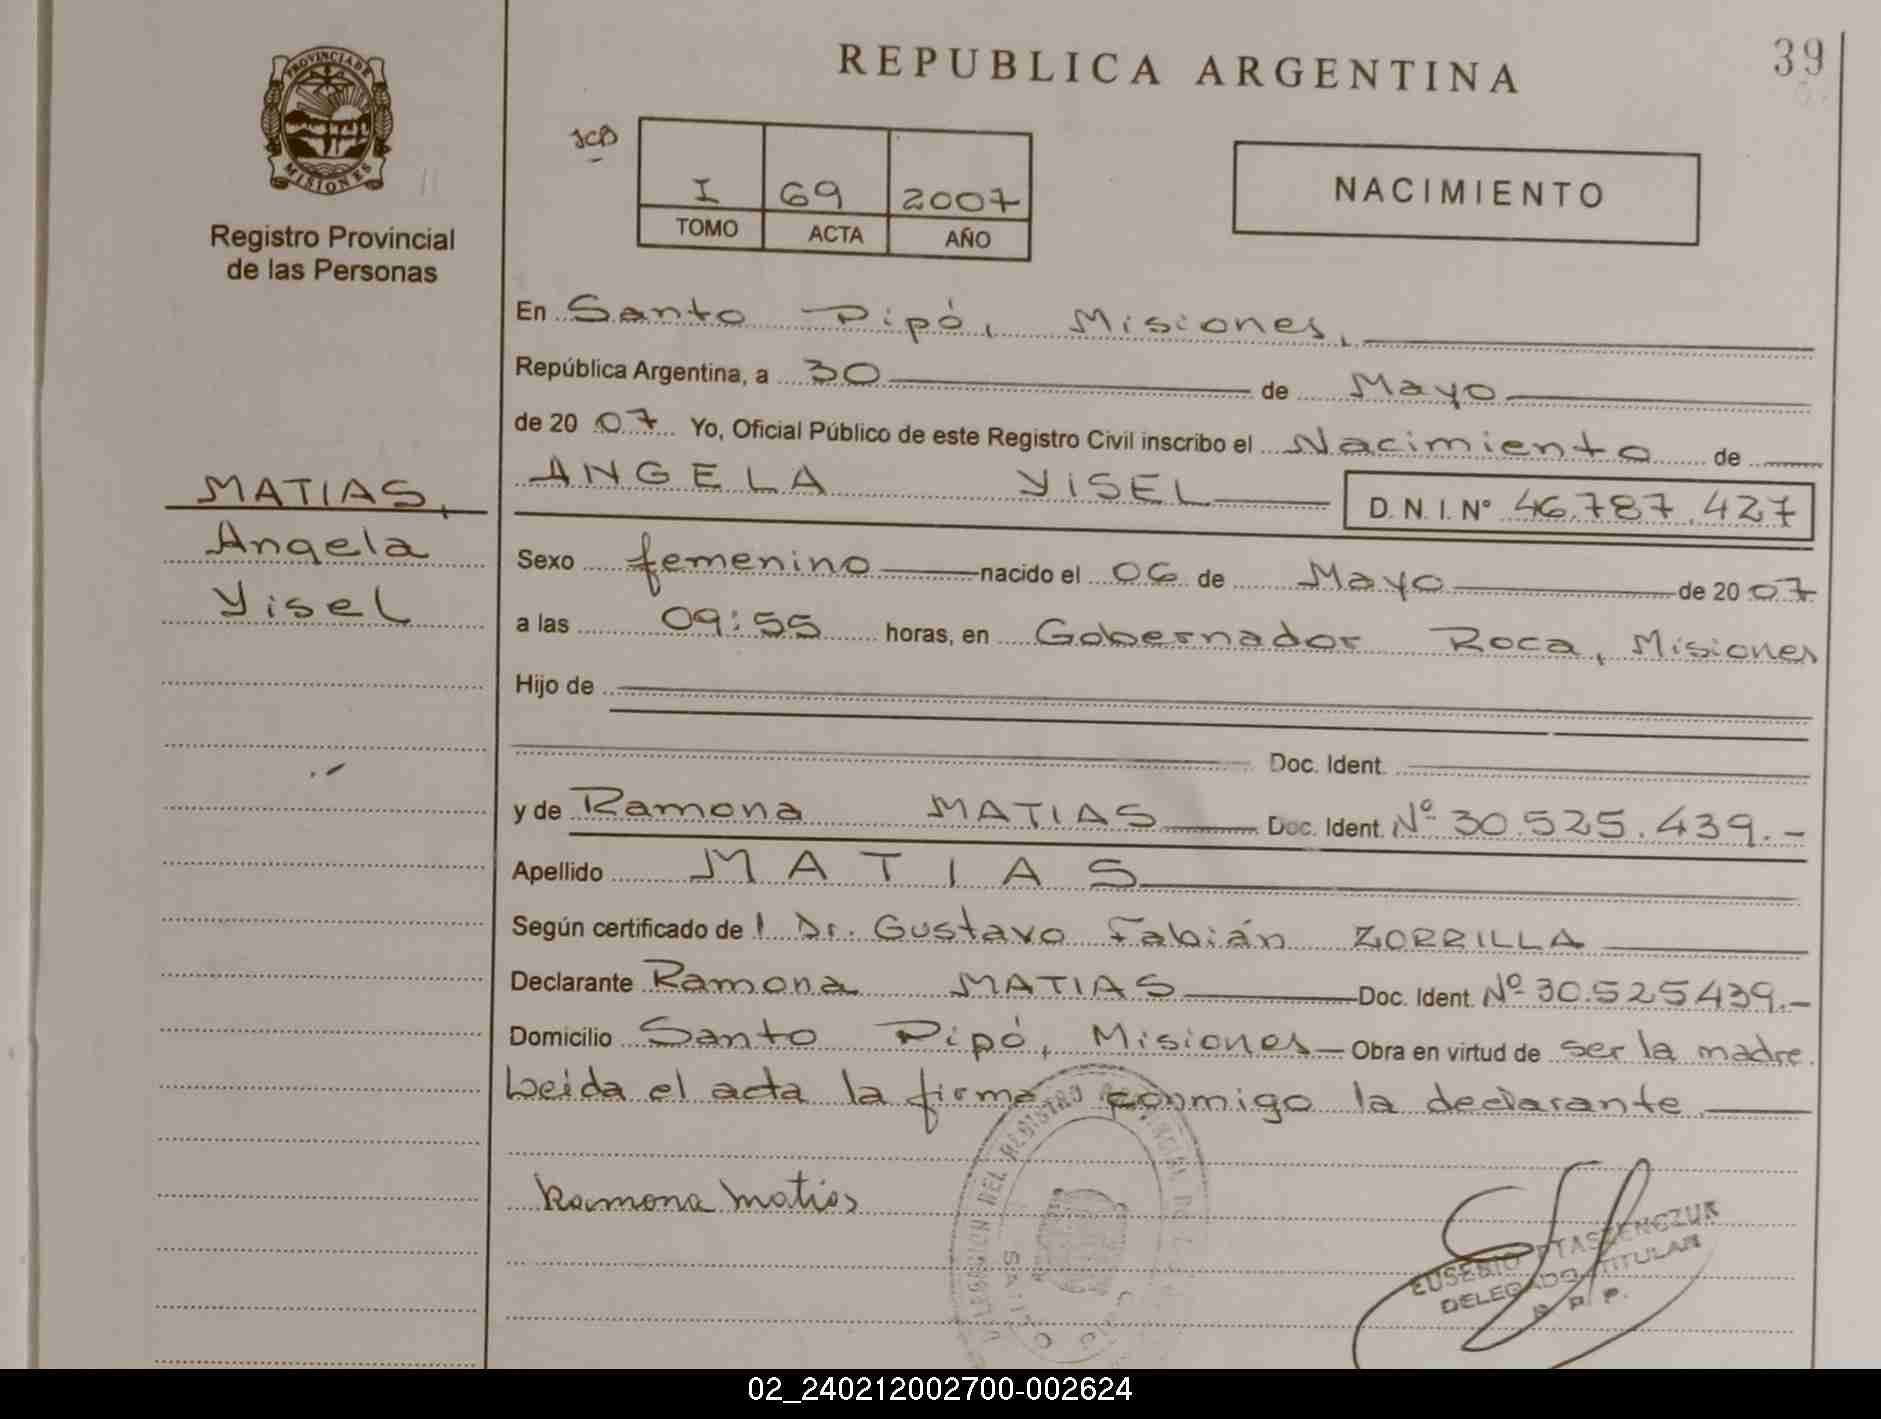 REPUBLICA ARGENTINA
39
PROVINCIA DE MISIONES
Registro Provincial
de las Personas
JCB
I 69 2007
TOMO ACTA AÑO
NACIMIENTO
En Santo Pipó, Misiones,
República Argentina, a 30 de Mayo
de 20 07 Yo, Oficial Público de este Registro Civil inscribo el Nacimiento de
ANGELA YISEL D.N.I.Nº 46.787.427
MATIAS,
Angela
Yisel
Sexo femenino nacido el 06 de Mayo de 20 07
a las 09:55 horas, en Gobernador Roca, Misiones
Hijo de
Doc. Ident.
y de Ramona MATIAS Doc. Ident. Nº 30.525.439.-
Apellido MATIAS
Según certificado de l Dr. Gustavo Fabián ZORRILLA
Declarante Ramona MATIAS Doc. Ident. Nº 30.525439.-
Domicilio Santo Pipó, Misiones — Obra en virtud de ser la madre.
Leida el acta la firma conmigo la declarante
Ramona Matias
DELEGACION DEL REGISTRO PROVINCIAL DE
SANTO
EUSEBIO PTASZENCZUK
DELEGADO TITULAR
R. P. P.
02_240212002700-002624